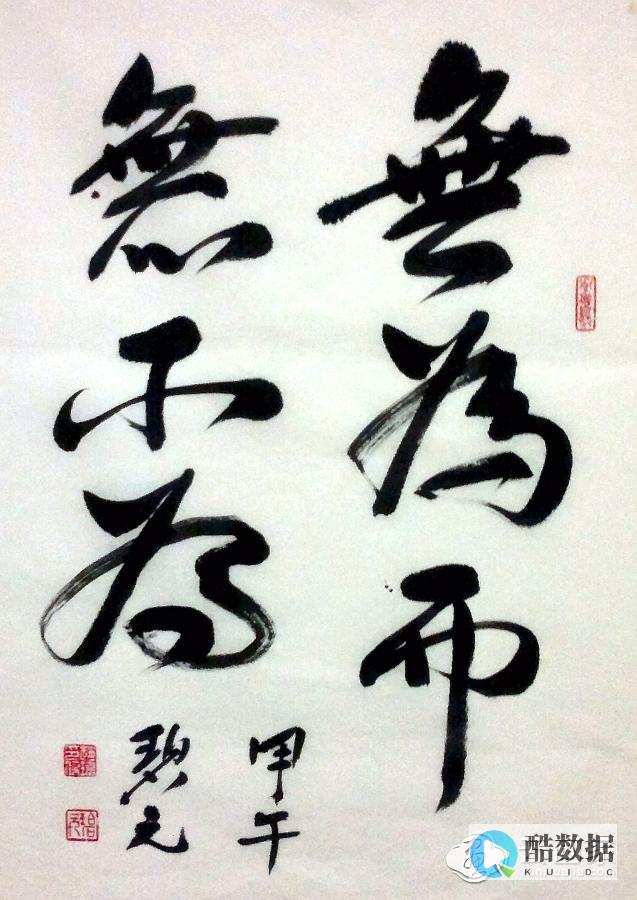 無為而
無不為
甲午
碧元
酷数据
KUIDC